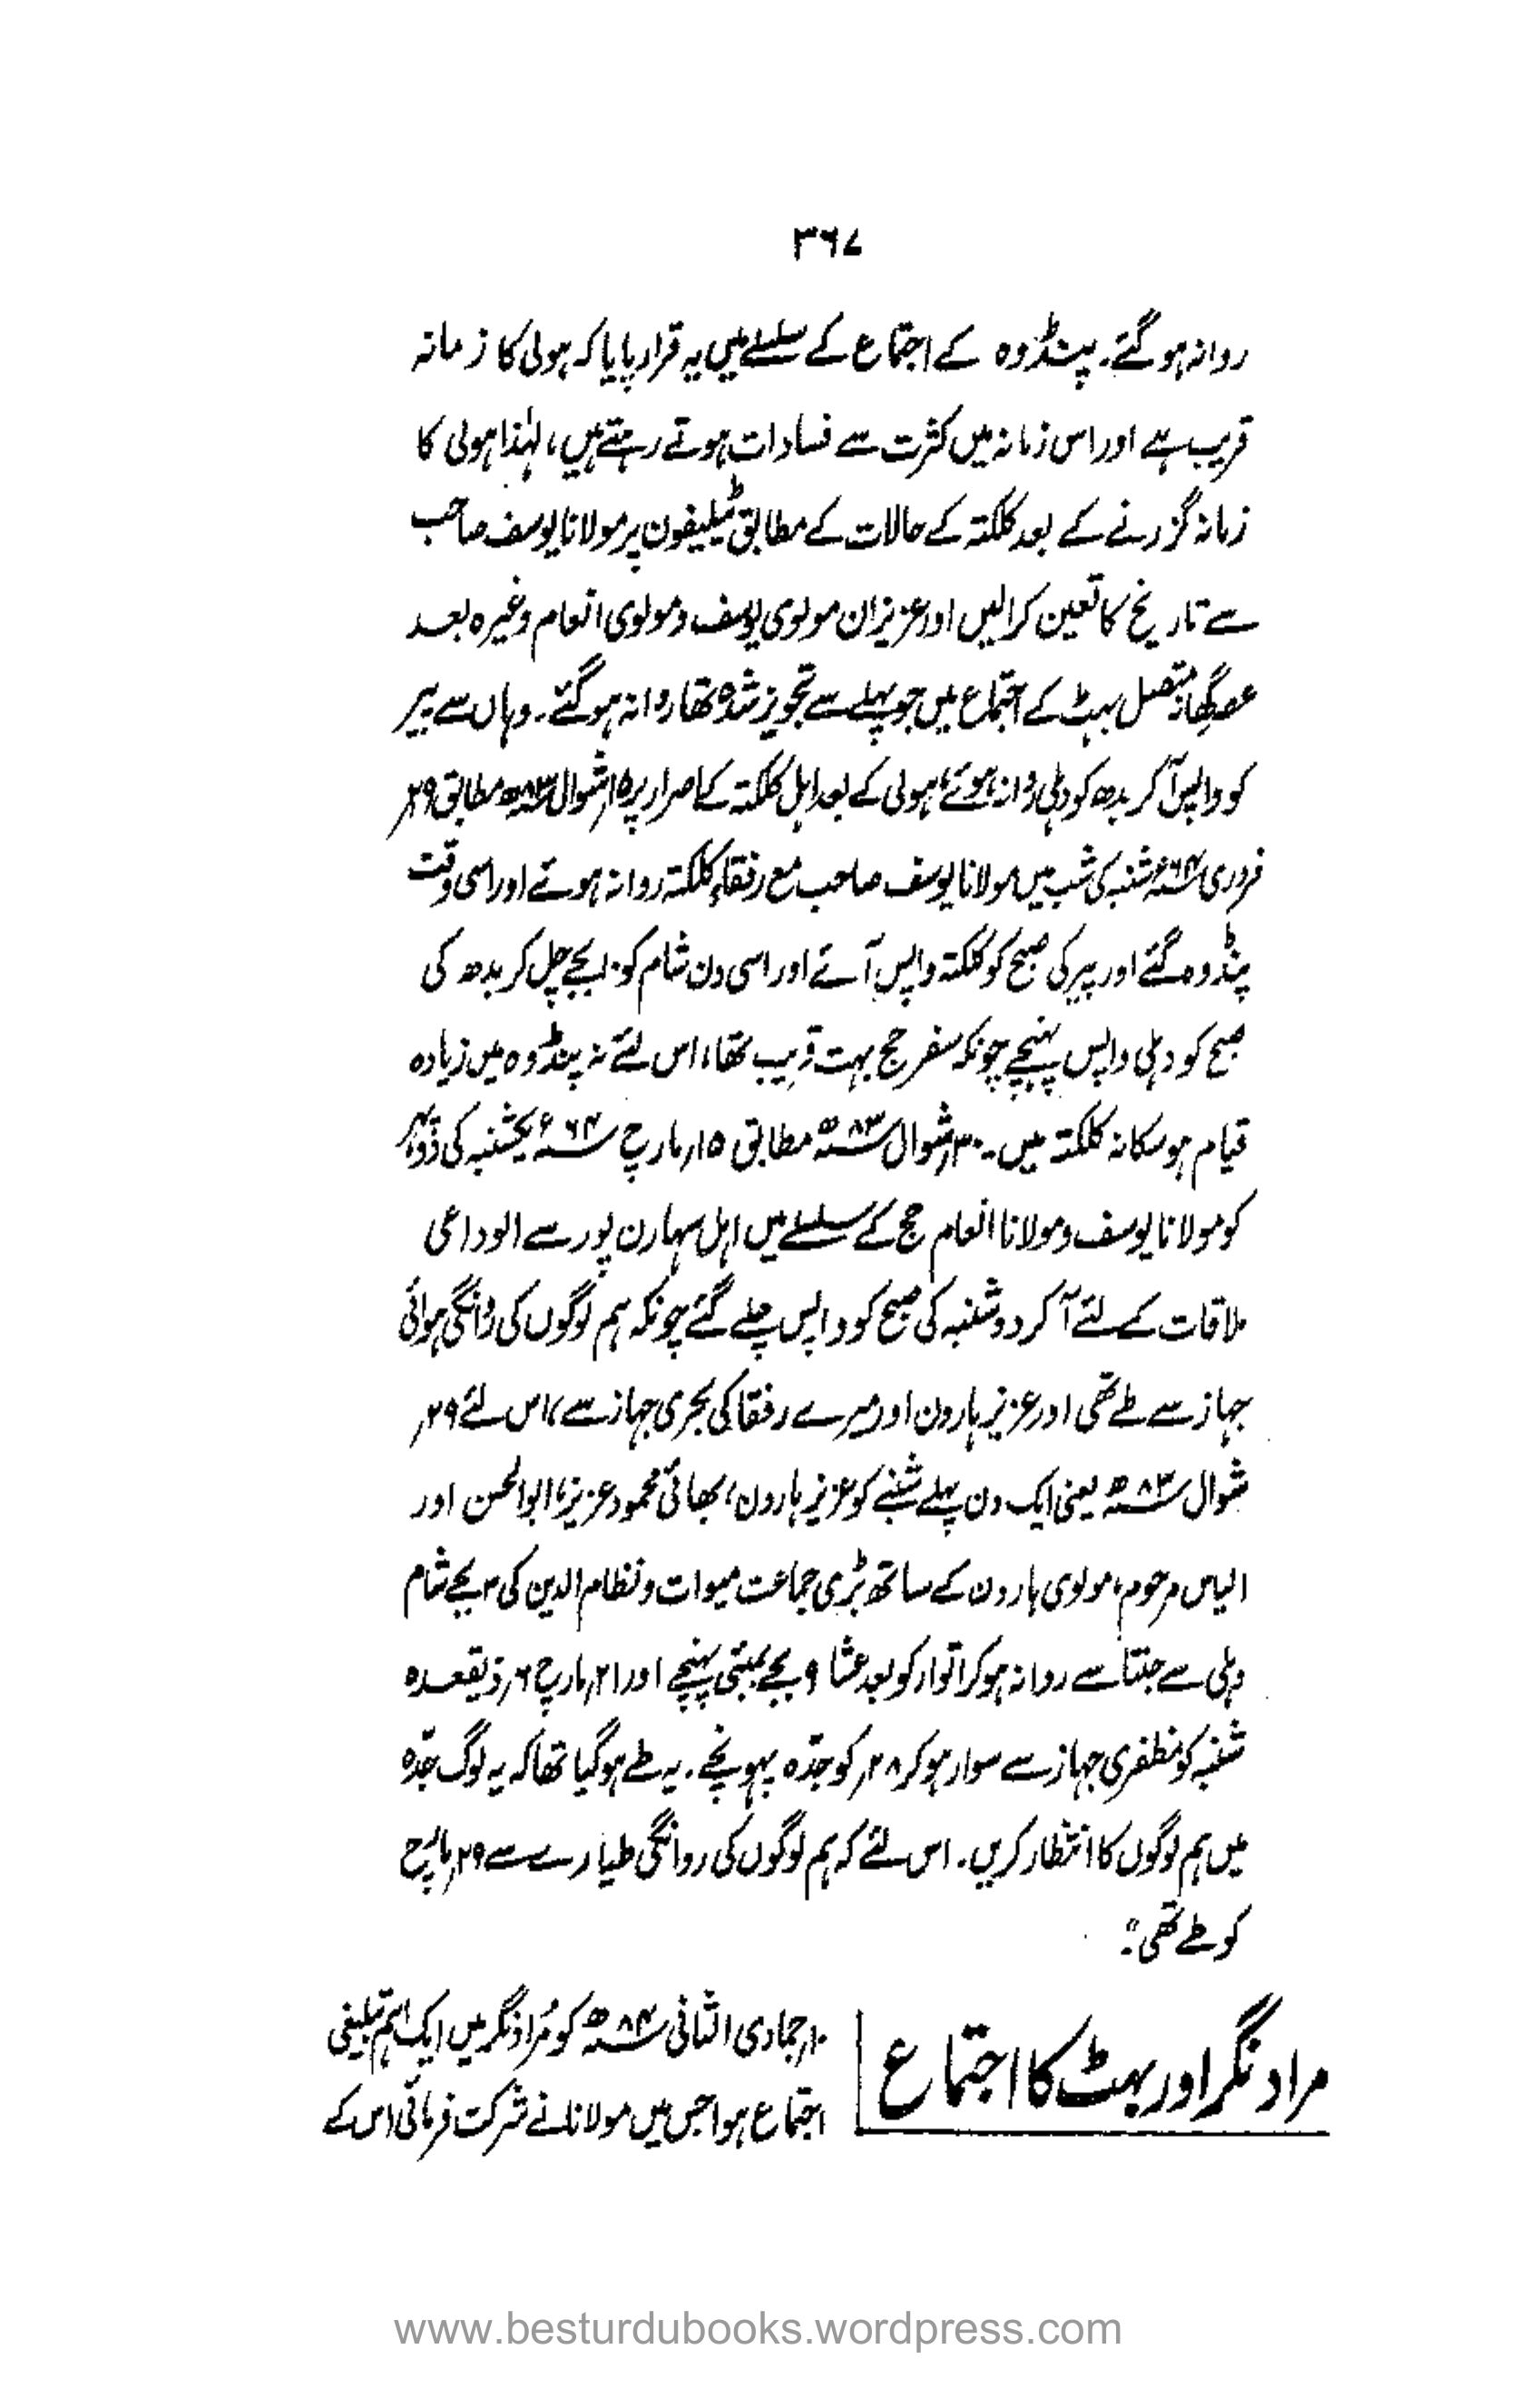 ۳۶۷
روانہ ہوگئے۔ پنڈوہ کے اجتماع کے سلسلے میں یہ قرار پایا کہ ہولی کا زمانہ
قریب ہے اور اس زمانہ میں کثرت سے فسادات ہوتے رہتے ہیں، لہٰذا ہولی کا
زمانہ گزرنے کے بعد کلکتہ کے حالات کے مطابق ٹیلیفون پر مولانا یوسف صاحب
سے تاریخ کا تعین کرالیں اور عزیزان مولوی یوسف و مولوی انعام وغیرہ بعد
عصر متصل بہٹ کے اجتماع میں جو پہلے سے تجویز شدہ تھا روانہ ہوگئے۔ وہاں سے پیر
کو واپس آکر بدھ کو دہلی روانہ ہوئے، ہولی کے بعد اہل کلکتہ کے اصرار پر ۱۵؍شوال ۸۳ھ مطابق ۲۹؍
فروری ۶۴ء شنبہ کی شب میں مولانا یوسف صاحب مع رفقاء کلکتہ روانہ ہوئے اور اسی وقت
پنڈوہ گئے اور پیر کی صبح کو کلکتہ واپس آئے اور اسی دن شام کو ۱۰بجے چل کر بدھ کی
صبح کو دہلی واپس پہنچے چونکہ سفر حج بہت قریب تھا، اس لئے نہ پنڈوہ میں زیادہ
قیام ہوسکا نہ کلکتہ میں۔ ۳۰؍شوال ۸۳ھ مطابق ۱۵؍مارچ ۶۴ء یکشنبہ کی دوپہر
کو مولانا یوسف و مولانا انعام حج کے سلسلے میں اہل سہارن پور سے الوداعی
ملاقات کے لئے آکر دوشنبہ کی صبح کو واپس چلے گئے چونکہ ہم لوگوں کی روانگی ہوائی
جہاز سے طے تھی اور عزیز ہارون اور میرے رفقا کی بحری جہاز سے، اس لئے ۲۹؍
شوال ۸۳ھ یعنی ایک دن پہلے شنبے کو عزیز ہارون، بھائی محمود عزیز، ابوالحسن اور
الیاس مرحوم، مولوی ہارون کے ساتھ بڑی جماعت میوات و نظام الدین کی ۴ بجے شام
دہلی سے جنتا سے روانہ ہوکر اتوار کو بعد عشا ۹ بجے بمبئی پہنچے اور ۲۱؍مارچ ۶؍ذیقعدہ
شنبہ کو مظفری جہاز سے سوار ہوکر ۲۸؍کو جدّہ پہونچے۔ یہ طے ہوگیا تھا کہ یہ لوگ جدّہ
میں ہم لوگوں کا انتظار کریں۔ اس لئے کہ ہم لوگوں کی روانگی طیارے سے ۲۹؍مارچ
کو طے تھی۔"
مراد نگر اور بہٹ کا اجتماع
۱۰؍جمادی الثانی ۸۴ھ کو مُراد نگر میں ایک اہم تبلیغی
اجتماع ہوا جس میں مولانا نے شرکت فرمائی اس کے
www.besturdubooks.wordpress.com